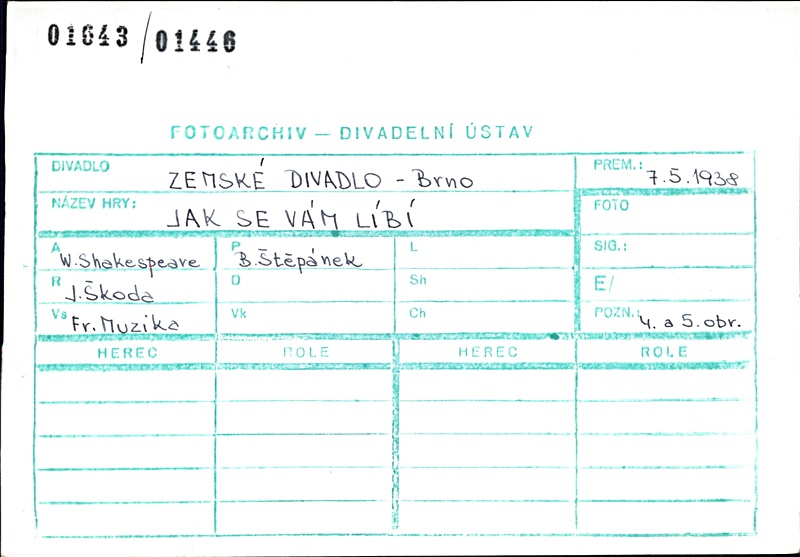 01643 / 01446
FOTOARCHIV — DIVADELNÍ ÚSTAV
DIVADLO ZEMSKÉ DIVADLO - Brno PREM.: 7.5.1938
NÁZEV HRY: JAK SE VÁM LÍBÍ FOTO
A W.Shakespeare P B.Štěpánek L SIG.:
R J.Škoda O Sh E/
Vs Fr.Muzika Vk Ch POZN.: 4. a 5. obr.
HEREC ROLE HEREC ROLE